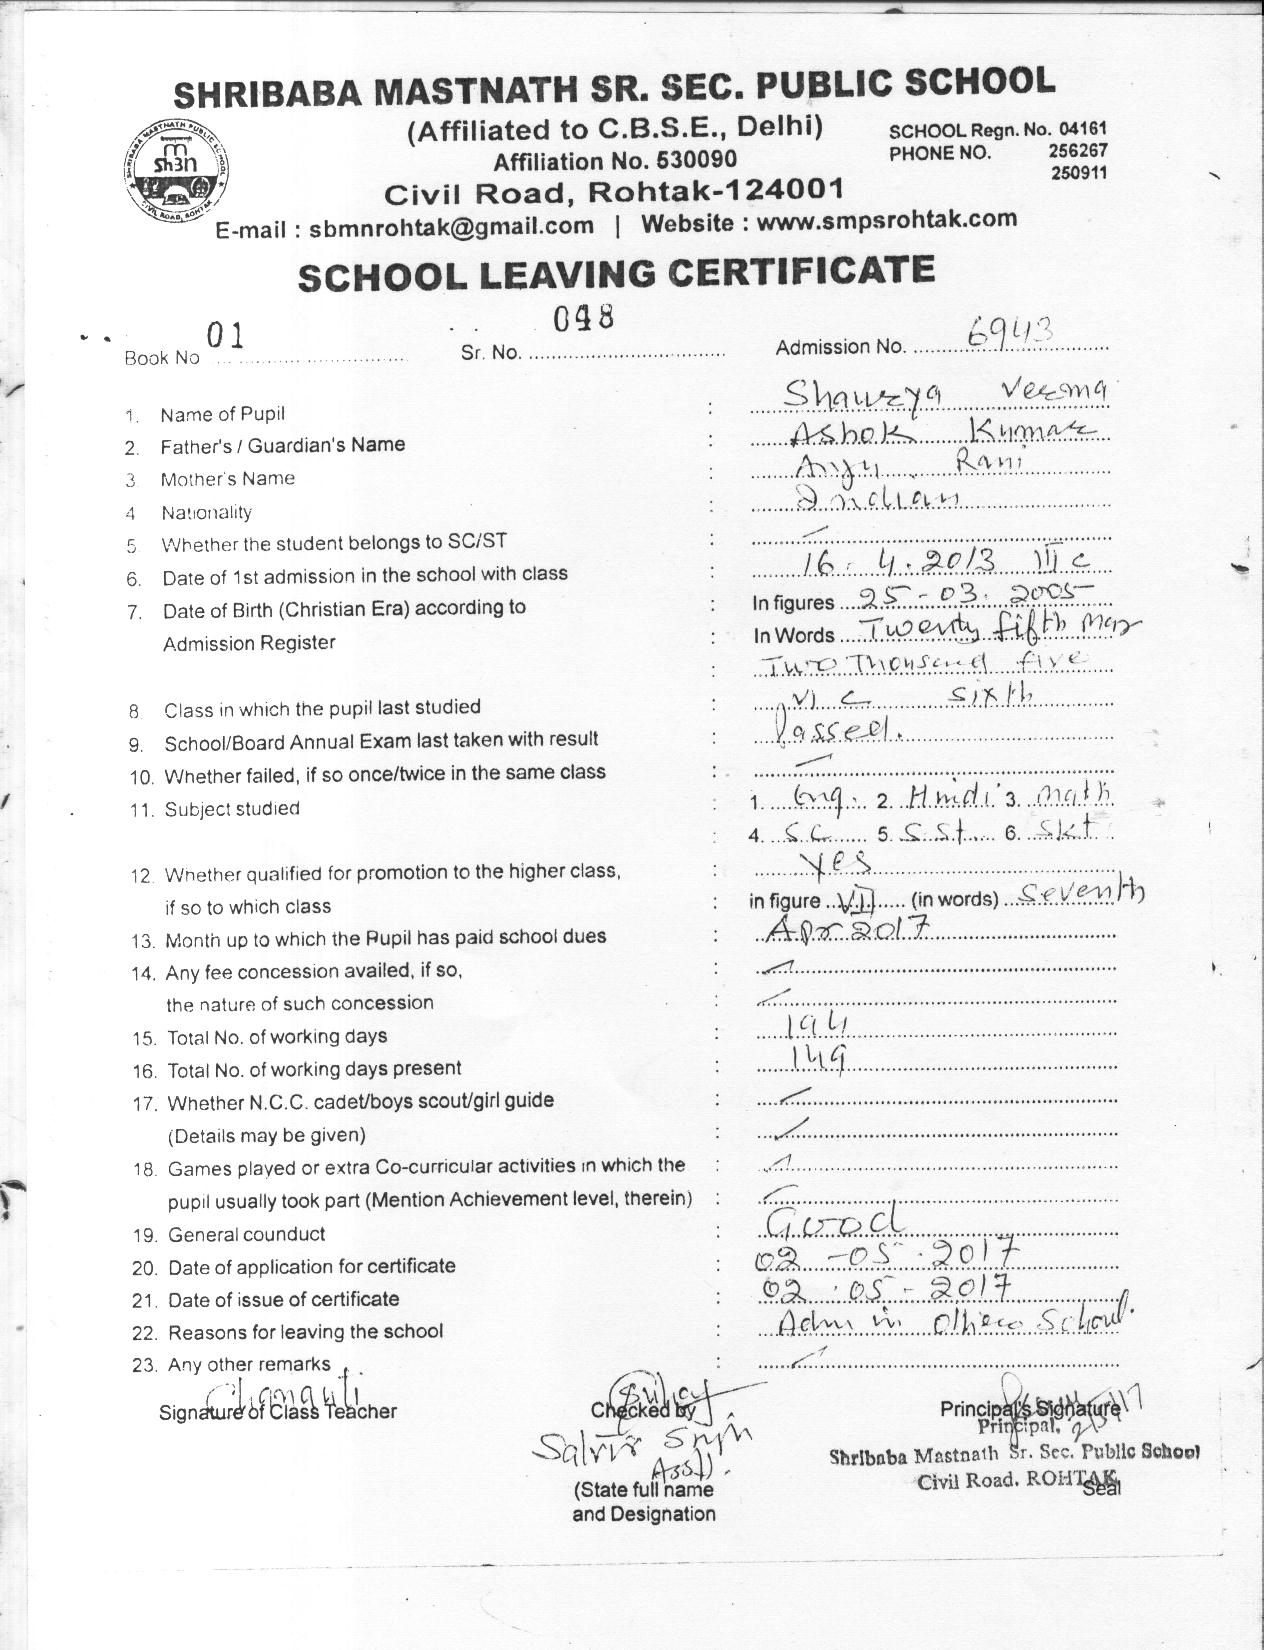 SHRIBABA MASTNATH SR. SEC. PUBLIC SCHOOL
(Affiliated to C.B.S.E., Delhi)
Affiliation No. 530090
SCHOOL Regn. No. 04161
PHONE NO. 256267
250911
Civil Road, Rohtak-124001
E-mail : sbmnrohtak@gmail.com | Website : www.smpsrohtak.com
SHRIBABA MASTNATH PUBLIC SCHOOL
CIVIL ROAD, ROHTAK
SCHOOL LEAVING CERTIFICATE
Book No 01 Sr. No. 048 Admission No. 6943
1. Name of Pupil : Shaurya Verma
2. Father's / Guardian's Name : Ashok Kumar
3 Mother's Name : Anju Rani
4 Nationality : Indian
5 Whether the student belongs to SC/ST :
6. Date of 1st admission in the school with class : 16. 4. 2013 III C
7. Date of Birth (Christian Era) according to : In figures 25-03. 2005
Admission Register : In Words Twenty fifth Mar
: Two Thousand five
8 Class in which the pupil last studied : VI C Sixth
9. School/Board Annual Exam last taken with result : Passed.
10. Whether failed, if so once/twice in the same class :
11. Subject studied : 1. Eng. 2. Hindi 3. Math
: 4. S.C. 5. S.St. 6. Skt
12. Whether qualified for promotion to the higher class, : Yes
if so to which class : in figure VII (in words) Seventh
13. Month up to which the Pupil has paid school dues : Apr 2017
14. Any fee concession availed, if so, :
the nature of such concession :
15. Total No. of working days : 194
16. Total No. of working days present : 149
17. Whether N.C.C. cadet/boys scout/girl guide :
(Details may be given) :
18. Games played or extra Co-curricular activities in which the :
pupil usually took part (Mention Achievement level, therein) :
19. General counduct : Good
20. Date of application for certificate : 02-05-2017
21. Date of issue of certificate : 02.05-2017
22. Reasons for leaving the school : Adm in Other School.
23. Any other remarks :
Signature of Class Teacher Checked by Principal's Signature
Principal,
Shribaba Mastnath Sr. Sec. Public School
Civil Road, ROHTAK
Seal
(State full name
and Designation